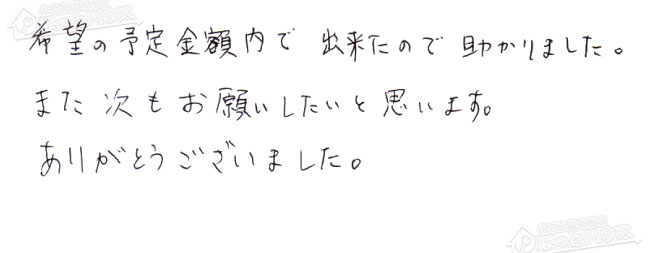 希望の予定金額内で 出来たので 助かりました。
また次もお願いしたいと思います。
ありがとうございました。